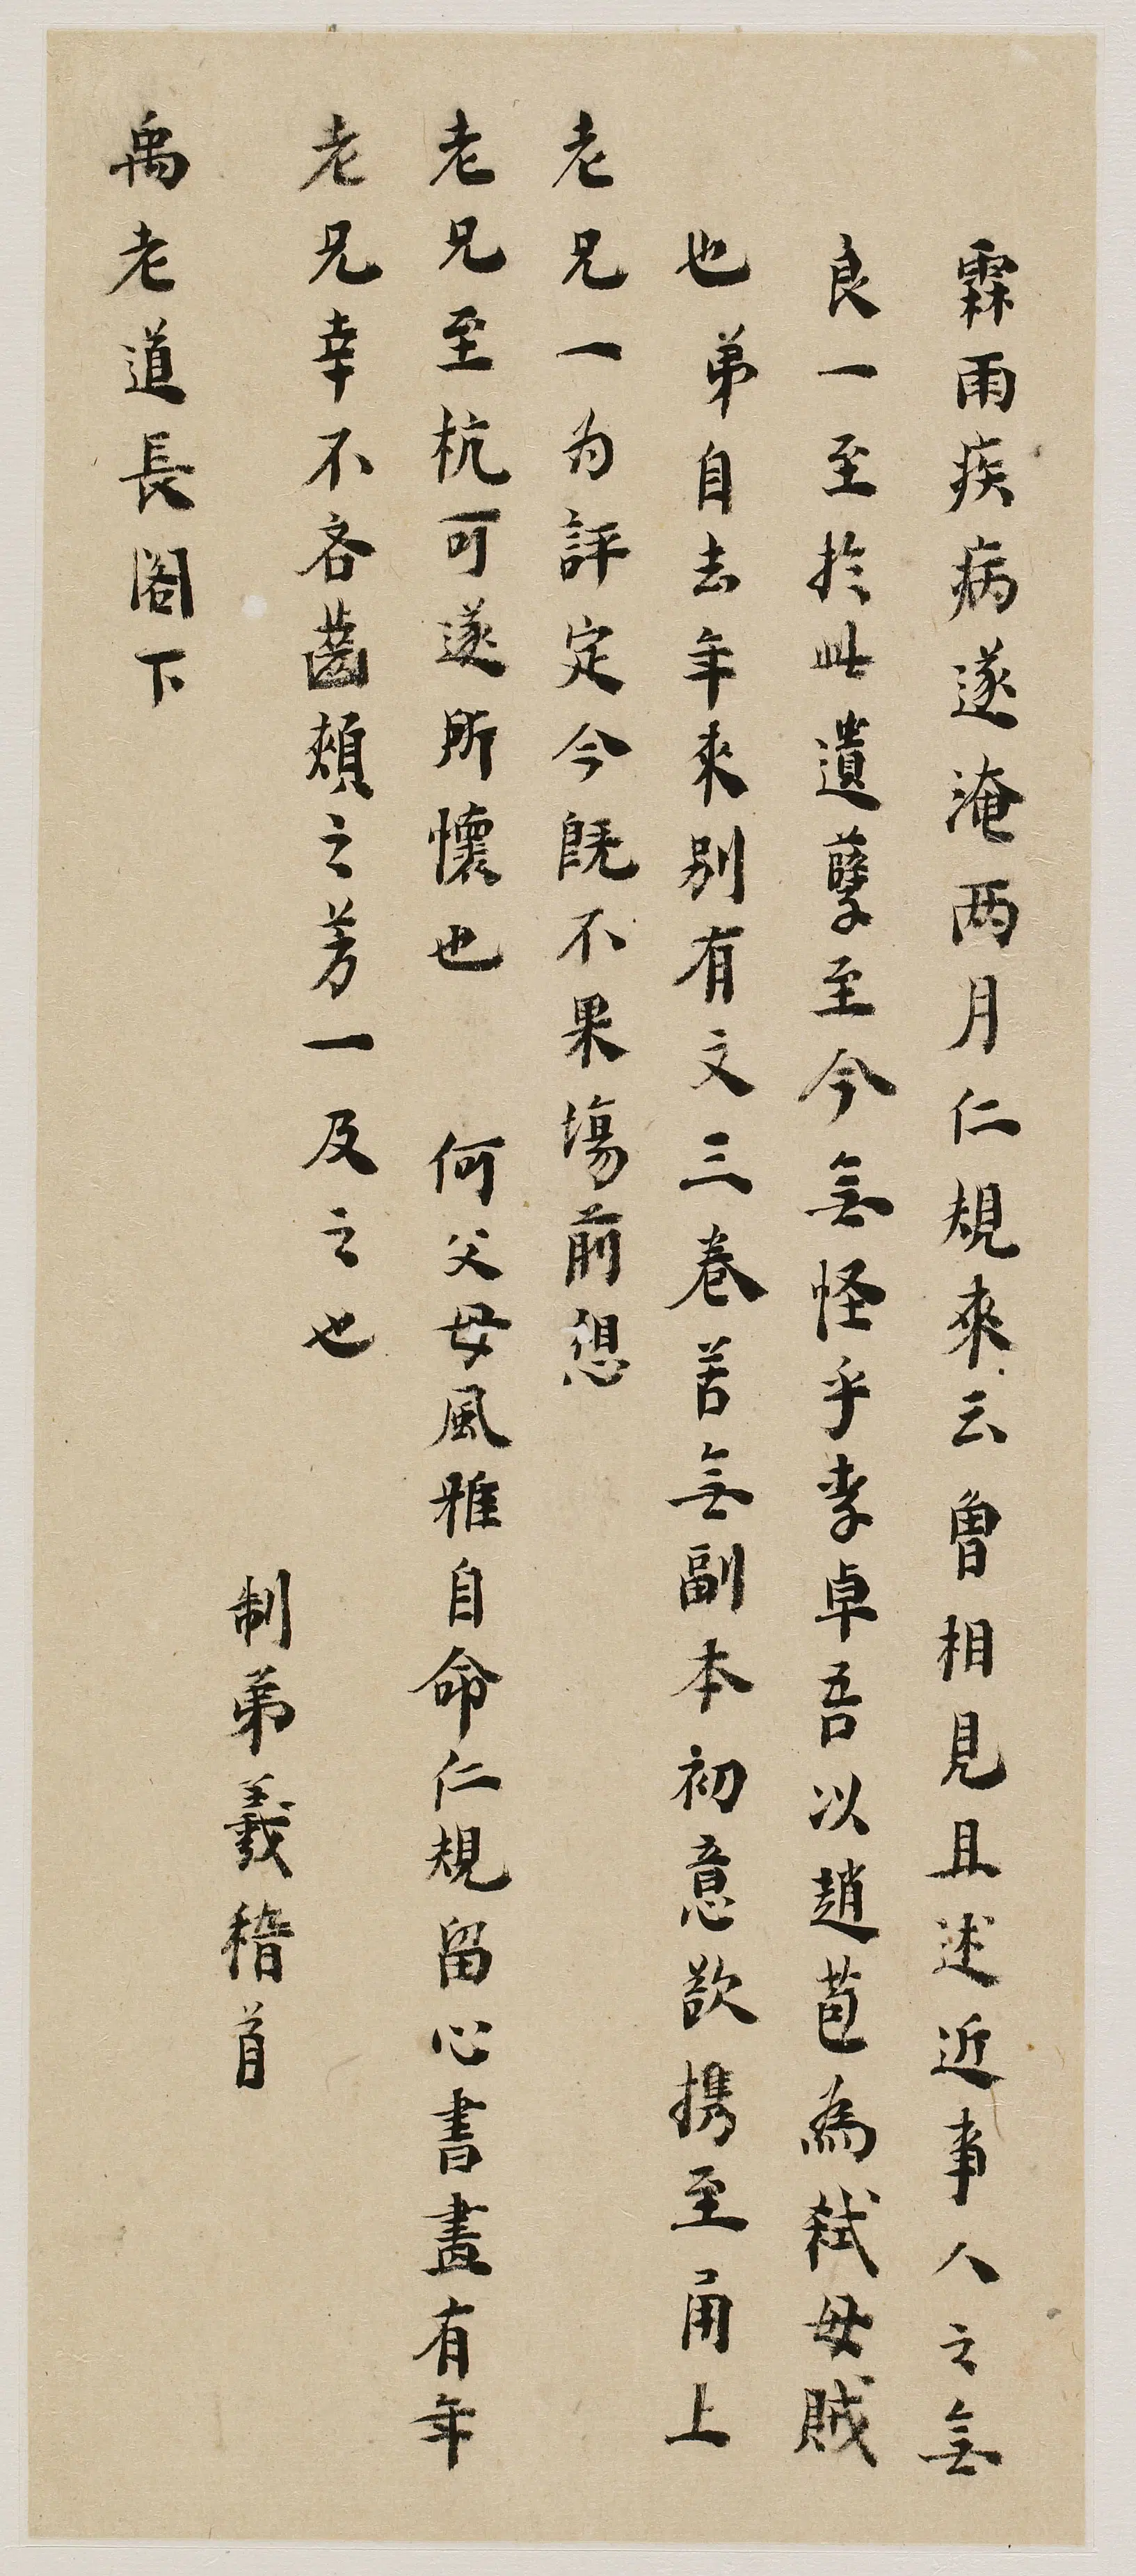 霖雨疾病遂淹两月仁規來云曾相見且述近事人之無
良一至於此遺孽至今無怪乎李卓吾以趙苞為弒母賊
也弟自去年來別有文三卷苦無副本初意欲携至甬上
老兄一为評定今既不果塲前想
老兄至杭可遂所懷也　何父母風雅自命仁規留心書畫有年
老兄幸不吝齒頰之芳一及之也
制弟羲稽首
禹老道長閣下